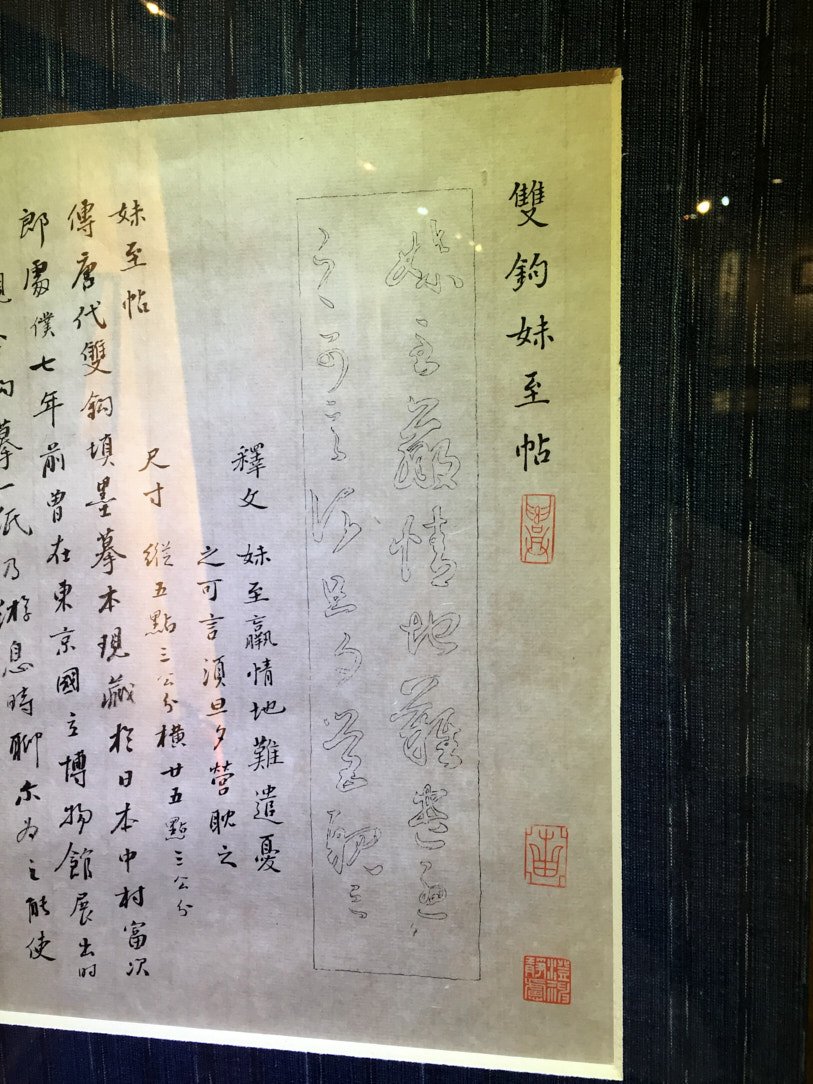 雙鉤妹至帖
妹至羸情地難遣憂
之可言須旦夕營耽之
釋文 妹至羸情地難遣憂
之可言須旦夕營耽之
尺寸 縱五點三公分橫廿五點三公分
妹至帖
傳唐代雙鈎填墨摹本現藏於日本中村富次
郎處僕七年前曾在東京國立博物館展出時
勾摹一紙乃游息時聊尔為之能使